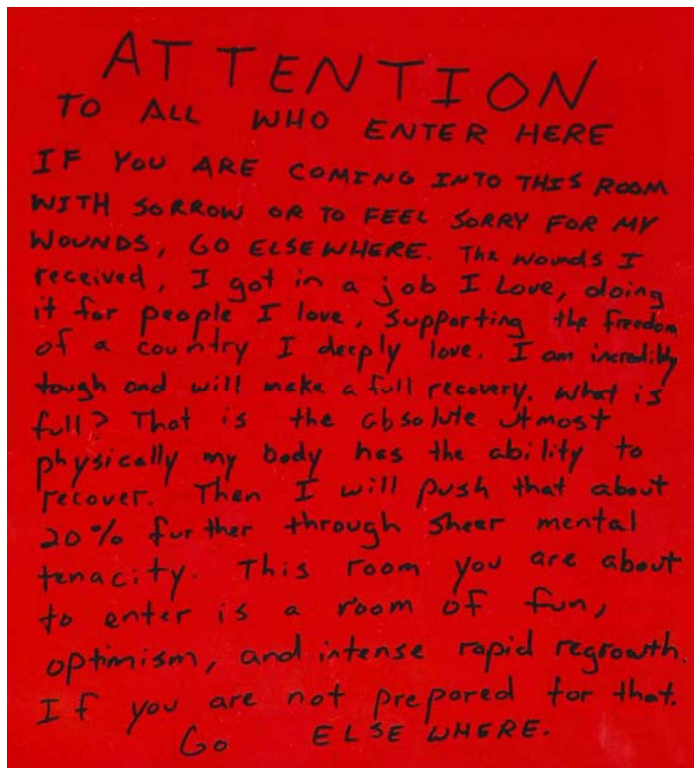 ATTENTION
TO ALL WHO ENTER HERE
IF YOU ARE COMING INTO THIS ROOM
WITH SORROW OR TO FEEL SORRY FOR MY
WOUNDS, GO ELSEWHERE. The wounds I
received, I got in a job I Love, doing
it for people I love, Supporting the freedom
of a country I deeply love. I am incredibly
tough and will make a full recovery. What is
full? That is the absolute utmost
physically my body has the ability to
recover. Then I will push that about
20% further through sheer mental
tenacity. This room you are about
to enter is a room of fun,
optimism, and intense rapid regrowth.
If you are not prepared for that.
Go ELSEWHERE.